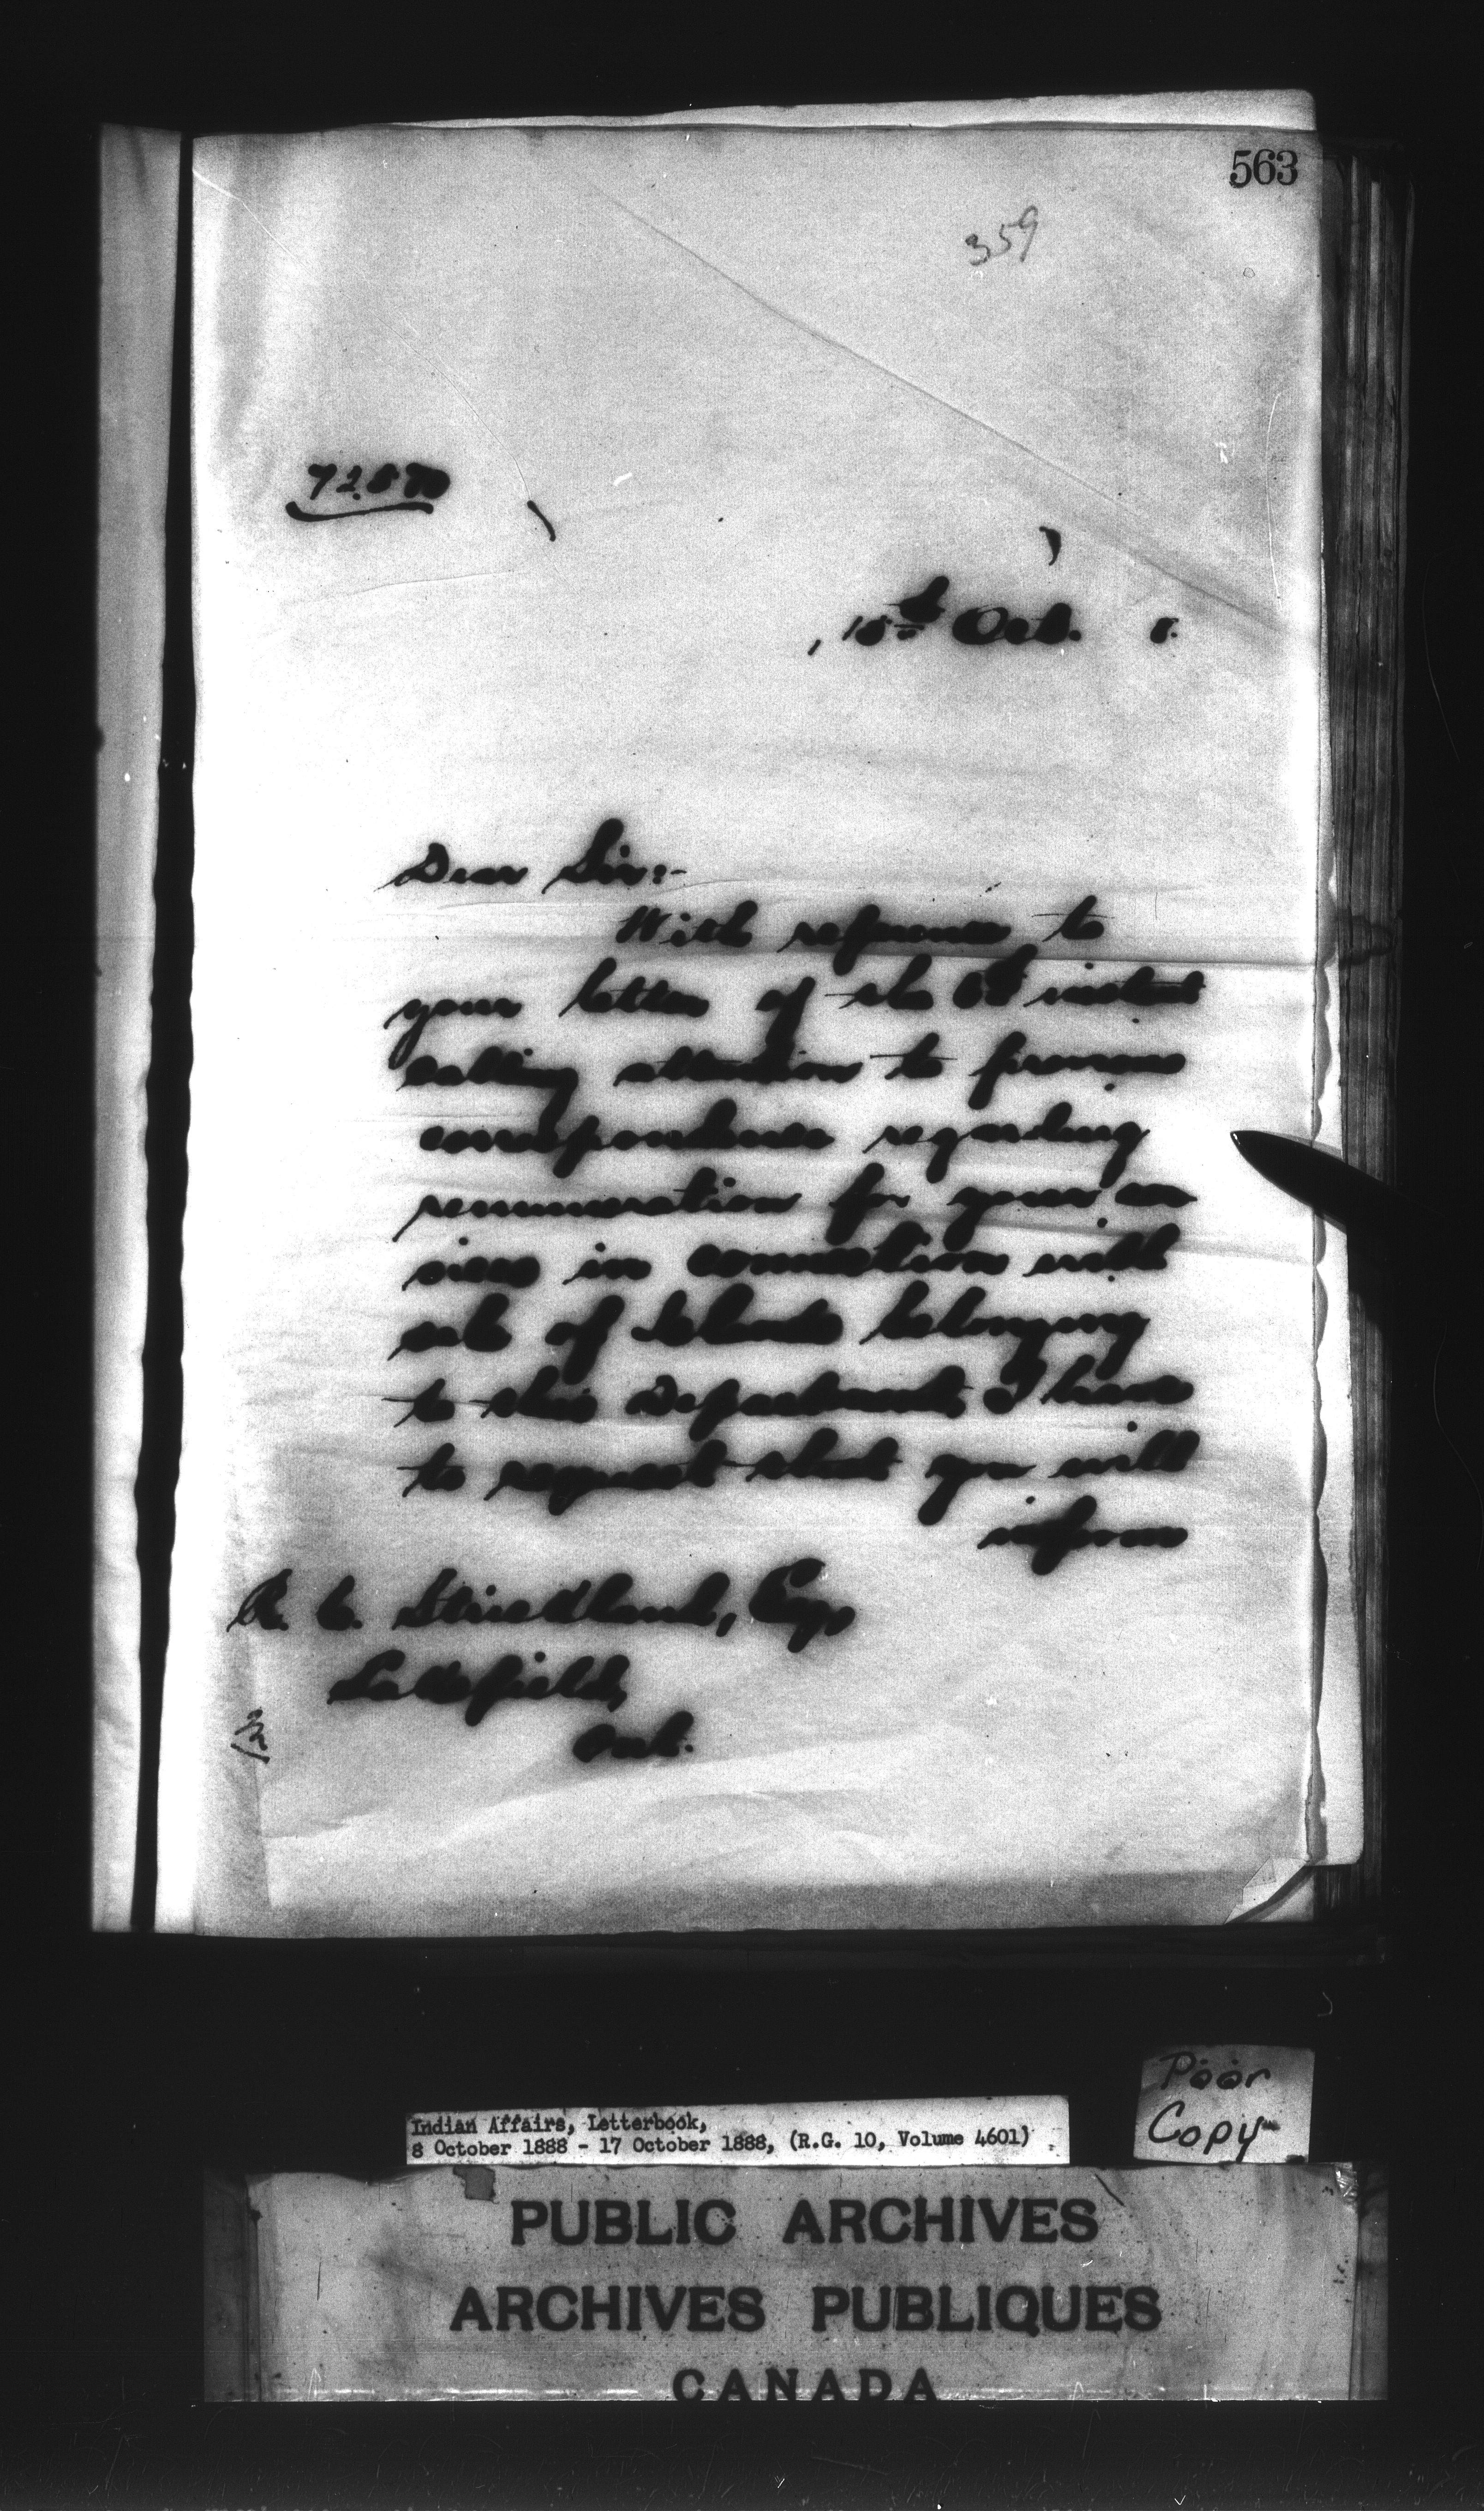 563
359
15th Oct. 8.
Dear Sir:-
With reference to
your letter of the instant
calling attention to former
correspondence regarding
remuneration for your ser
vices in connection with
sale of Islands belonging
to this Department, I have
to request that you will
inform
R. C. Strickland, Esq,
Lakefield,
Ont.
Poor
Copy
Indian Affairs, Letterbook,
8 October 1888 - 17 October 1888, (R.G. 10, Volume 4601)
PUBLIC ARCHIVES
ARCHIVES PUBLIQUES
CANADA